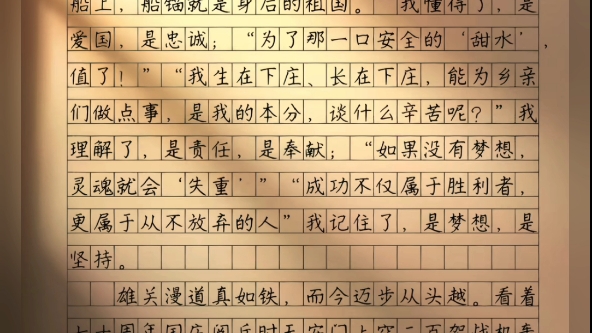 船上，船锚就是身后的祖国。”我懂得了，是
爱国，是忠诚；“为了那一口安全的‘甜水’，
值了！”“我生在下庄、长在下庄，能为乡亲
们做点事，是我的本分，谈什么辛苦呢？”我
理解了，是责任，是奉献；“如果没有梦想，
灵魂就会‘失重’”“成功不仅属于胜利者，
更属于从不放弃的人”我记住了，是梦想，是
坚持。
雄关漫道真如铁，而今迈步从头越。看着
七十周年国庆阅兵时天安门上空二百架战机轰